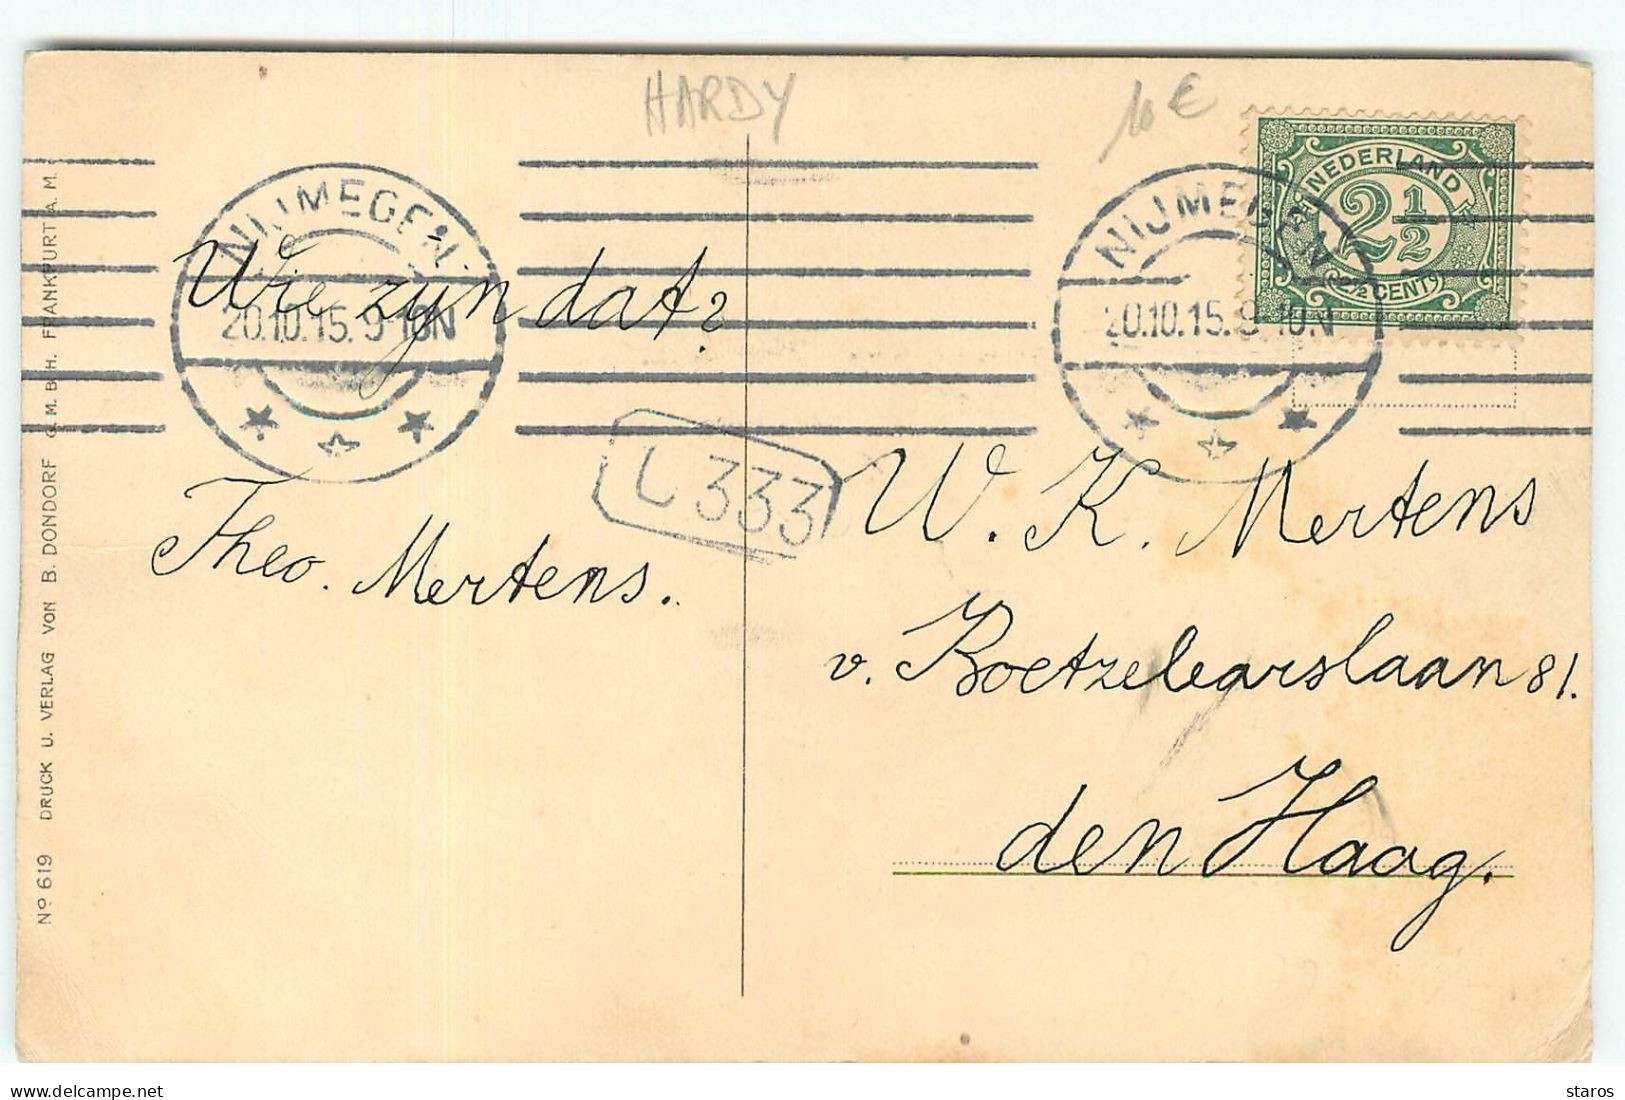 HARDY
10 €
NIJMEGEN
20.10.15. 9-10N
NIJMEGEN
20.10.15. 9-10N
NEDERLAND
2 1/2
(2½ CENT)
Wie zijn dat?
L 333
Theo. Mertens.
W. K. Mertens
v. Boetzelaerslaan 81.
den Haag.
Nº 619 DRUCK U. VERLAG VON B. DONDORF G. M. B. H. FRANKFURT A. M.
delcampe.net
staros